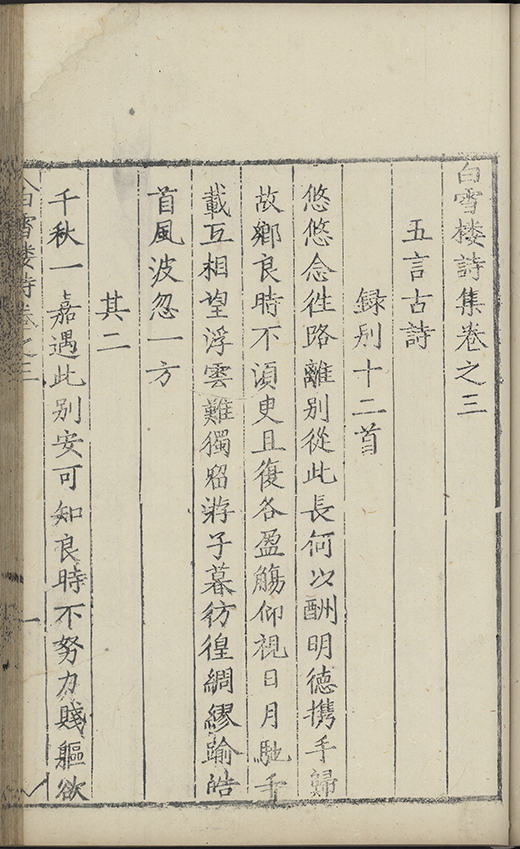 白雪楼詩集卷之三
五言古詩
録别十二首
悠悠念徃路離别從此長何以酬明德携手歸
故鄉良時不湏臾且復各盈觴仰視日月馳千
載互相望浮雲難獨留游子暮彷徨綢繆踰皓
首風波忽一方
其二
千秋一嘉遇此别安可知良時不努力賤軀欲
白雪楼詩卷之三
一